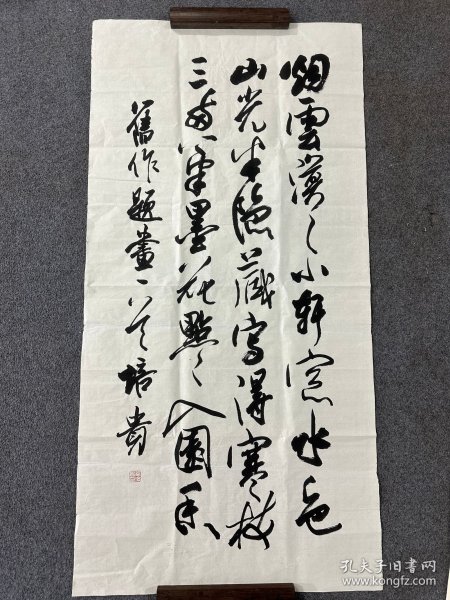 烟雲漠〻小軒窓水色
山光半隐藏寫得寒枝
三两筆墨花點〻入園香
舊作題畫一首培貴
孔夫子旧书网
www.kongfz.com